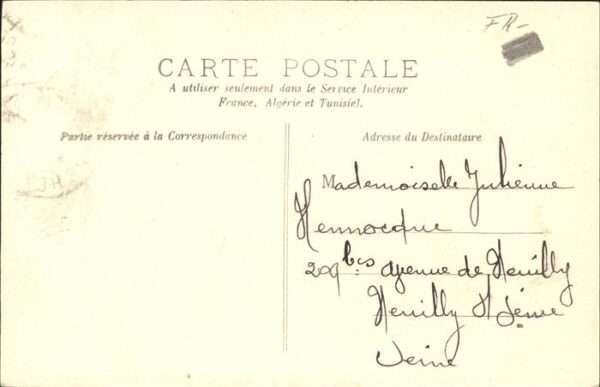 FR-
CARTE POSTALE
A utiliser seulement dans le Service Intérieur
France, Algérie et Tunisie).
Partie réservée à la Correspondance
Adresse du Destinataire
Mademoiselle Julienne
Hennocque
209 bis avenue de Neuilly
Neuilly s/ Seine
Seine